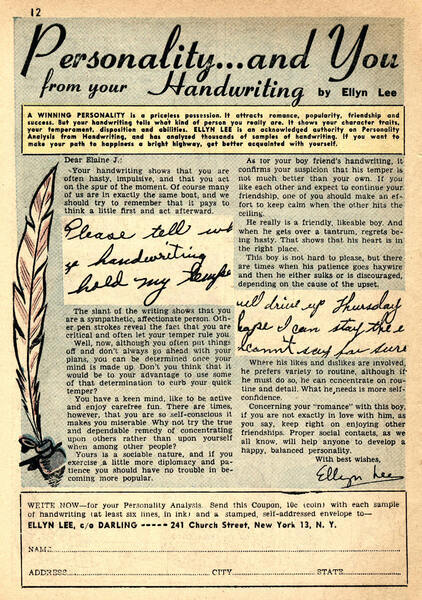 12
Personality...and You
from your Handwriting by Ellyn Lee
A WINNING PERSONALITY is a priceless possession. It attracts romance, popularity, friendship and
success. But your handwriting tells what kind of person you really are. It shows your character traits,
your temperament, disposition and abilities. ELLYN LEE is an acknowledged authority on Personality
Analysis from Handwriting, and has analyzed thousands of samples of handwriting. If you want to
make your path to happiness a bright highway, get better acquainted with yourself.
Dear Elaine J.:
Your handwriting shows that you are
often hasty, impulsive, and that you act
on the spur of the moment. Of course many
of us are in exactly the same boat, and we
should try to remember that it pays to
think a little first and act afterward.
Please tell
handwriting
hold my temper
The slant of the writing shows that you
are a sympathetic, affectionate person. Oth-
er pen strokes reveal the fact that you are
critical and often let your temper rule you.
Well, now, although you often put things
off and don't always go ahead with your
plans, you can be determined once your
mind is made up. Don't you think that it
would be to your advantage to use some
of that determination to curb your quick
temper?
You have a keen mind, like to be active
and enjoy carefree fun. There are times,
however, that you are so self-conscious it
makes you miserable. Why not try the true
and dependable remedy of concentrating
upon others rather than upon yourself
when among other people?
Yours is a sociable nature, and if you
exercise a little more diplomacy and pa-
tience you should have no trouble in be-
coming more popular.
As for your boy friend's handwriting, it
confirms your suspicion that his temper is
not much better than your own. If you
like each other and expect to continue your
friendship, one of you should make an ef-
fort to keep calm when the other hits the
ceiling.
He really is a friendly, likeable boy. And
when he gets over a tantrum, regrets be-
ing hasty. That shows that his heart is in
the right place.
This boy is not hard to please, but there
are times when his patience goes haywire
and then he either sulks or is discouraged,
depending on the cause of the upset.
will drive up Thursday
hope I can stay the
cannot say for sure
Where his likes and dislikes are involved,
he prefers variety to routine, although if
he must do so, he can concentrate on rou-
tine and detail. What he needs is more self-
confidence.
Concerning your "romance" with this boy,
if you are not exactly in love with him, as
you say, keep right on enjoying other
friendships. Proper social contacts, as we
all know, will help anyone to develop a
happy, balanced personality.
With best wishes,
Ellyn Lee
WRITE NOW—for your Personality Analysis. Send this Coupon, 10c (coin) with each sample
of handwriting (at least six lines, in ink) and a stamped, self-addressed envelope to—
ELLYN LEE, c/o DARLING ----- 241 Church Street, New York 13, N. Y.
NAME
ADDRESS CITY STATE